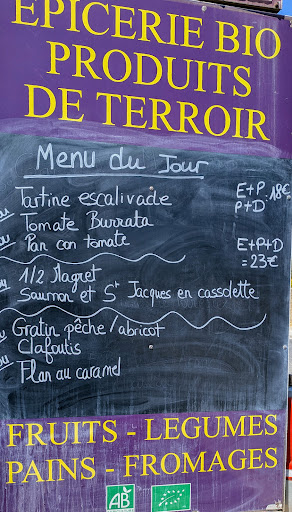 EPICERIE BIO
PRODUITS
DE TERROIR
Menu du Jour
Tartine escalivade
ou Tomate Burrata
ou Pan con tomate
E+P 18€
P+D
E+P+D
= 23€
1/2 Magret
Saumon et St Jacques en cassolette
Gratin pêche/abricot
ou Clafoutis
ou Flan au caramel
FRUITS - LEGUMES
PAINS - FROMAGES
AB